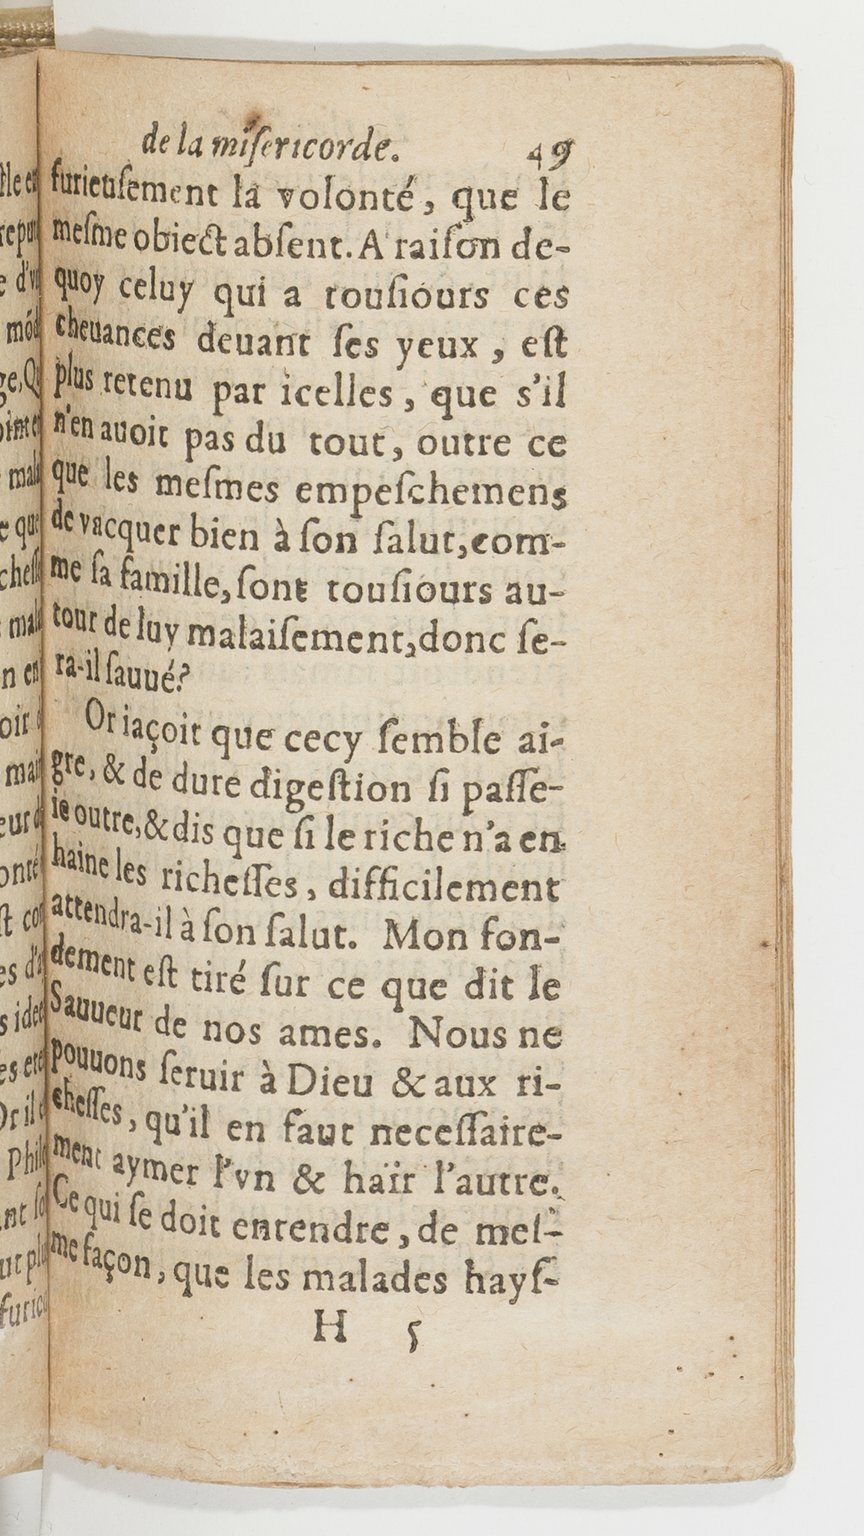 de la miſericorde. 49
furieuſement la volonté, que le
meſme obiect abſent. A raiſon de-
quoy celuy qui a touſiours ces
cheuances deuant ſes yeux, eſt
plus retenu par icelles, que s'il
n'en auoit pas du tout, outre ce
que les meſmes empeſchemens
de vacquer bien à ſon ſalut, com-
me ſa famille, ſont touſiours au-
tour de luy malaiſement, donc ſe-
ra-il ſauué?
Or iaçoit que cecy ſemble ai-
gre, & de dure digeſtion ſi paſſe-
ie outre, & dis que ſi le riche n'a en
haine les richeſſes, difficilement
attendra-il à ſon ſalut. Mon fon-
dement eſt tiré ſur ce que dit le
Sauueur de nos ames. Nous ne
pouuons ſeruir à Dieu & aux ri-
cheſſes, qu'il en faut neceſſaire-
ment aymer l'vn & haïr l'autre.
Ce qui ſe doit entendre, de meſ-
me façon, que les malades hayſ-
H 5